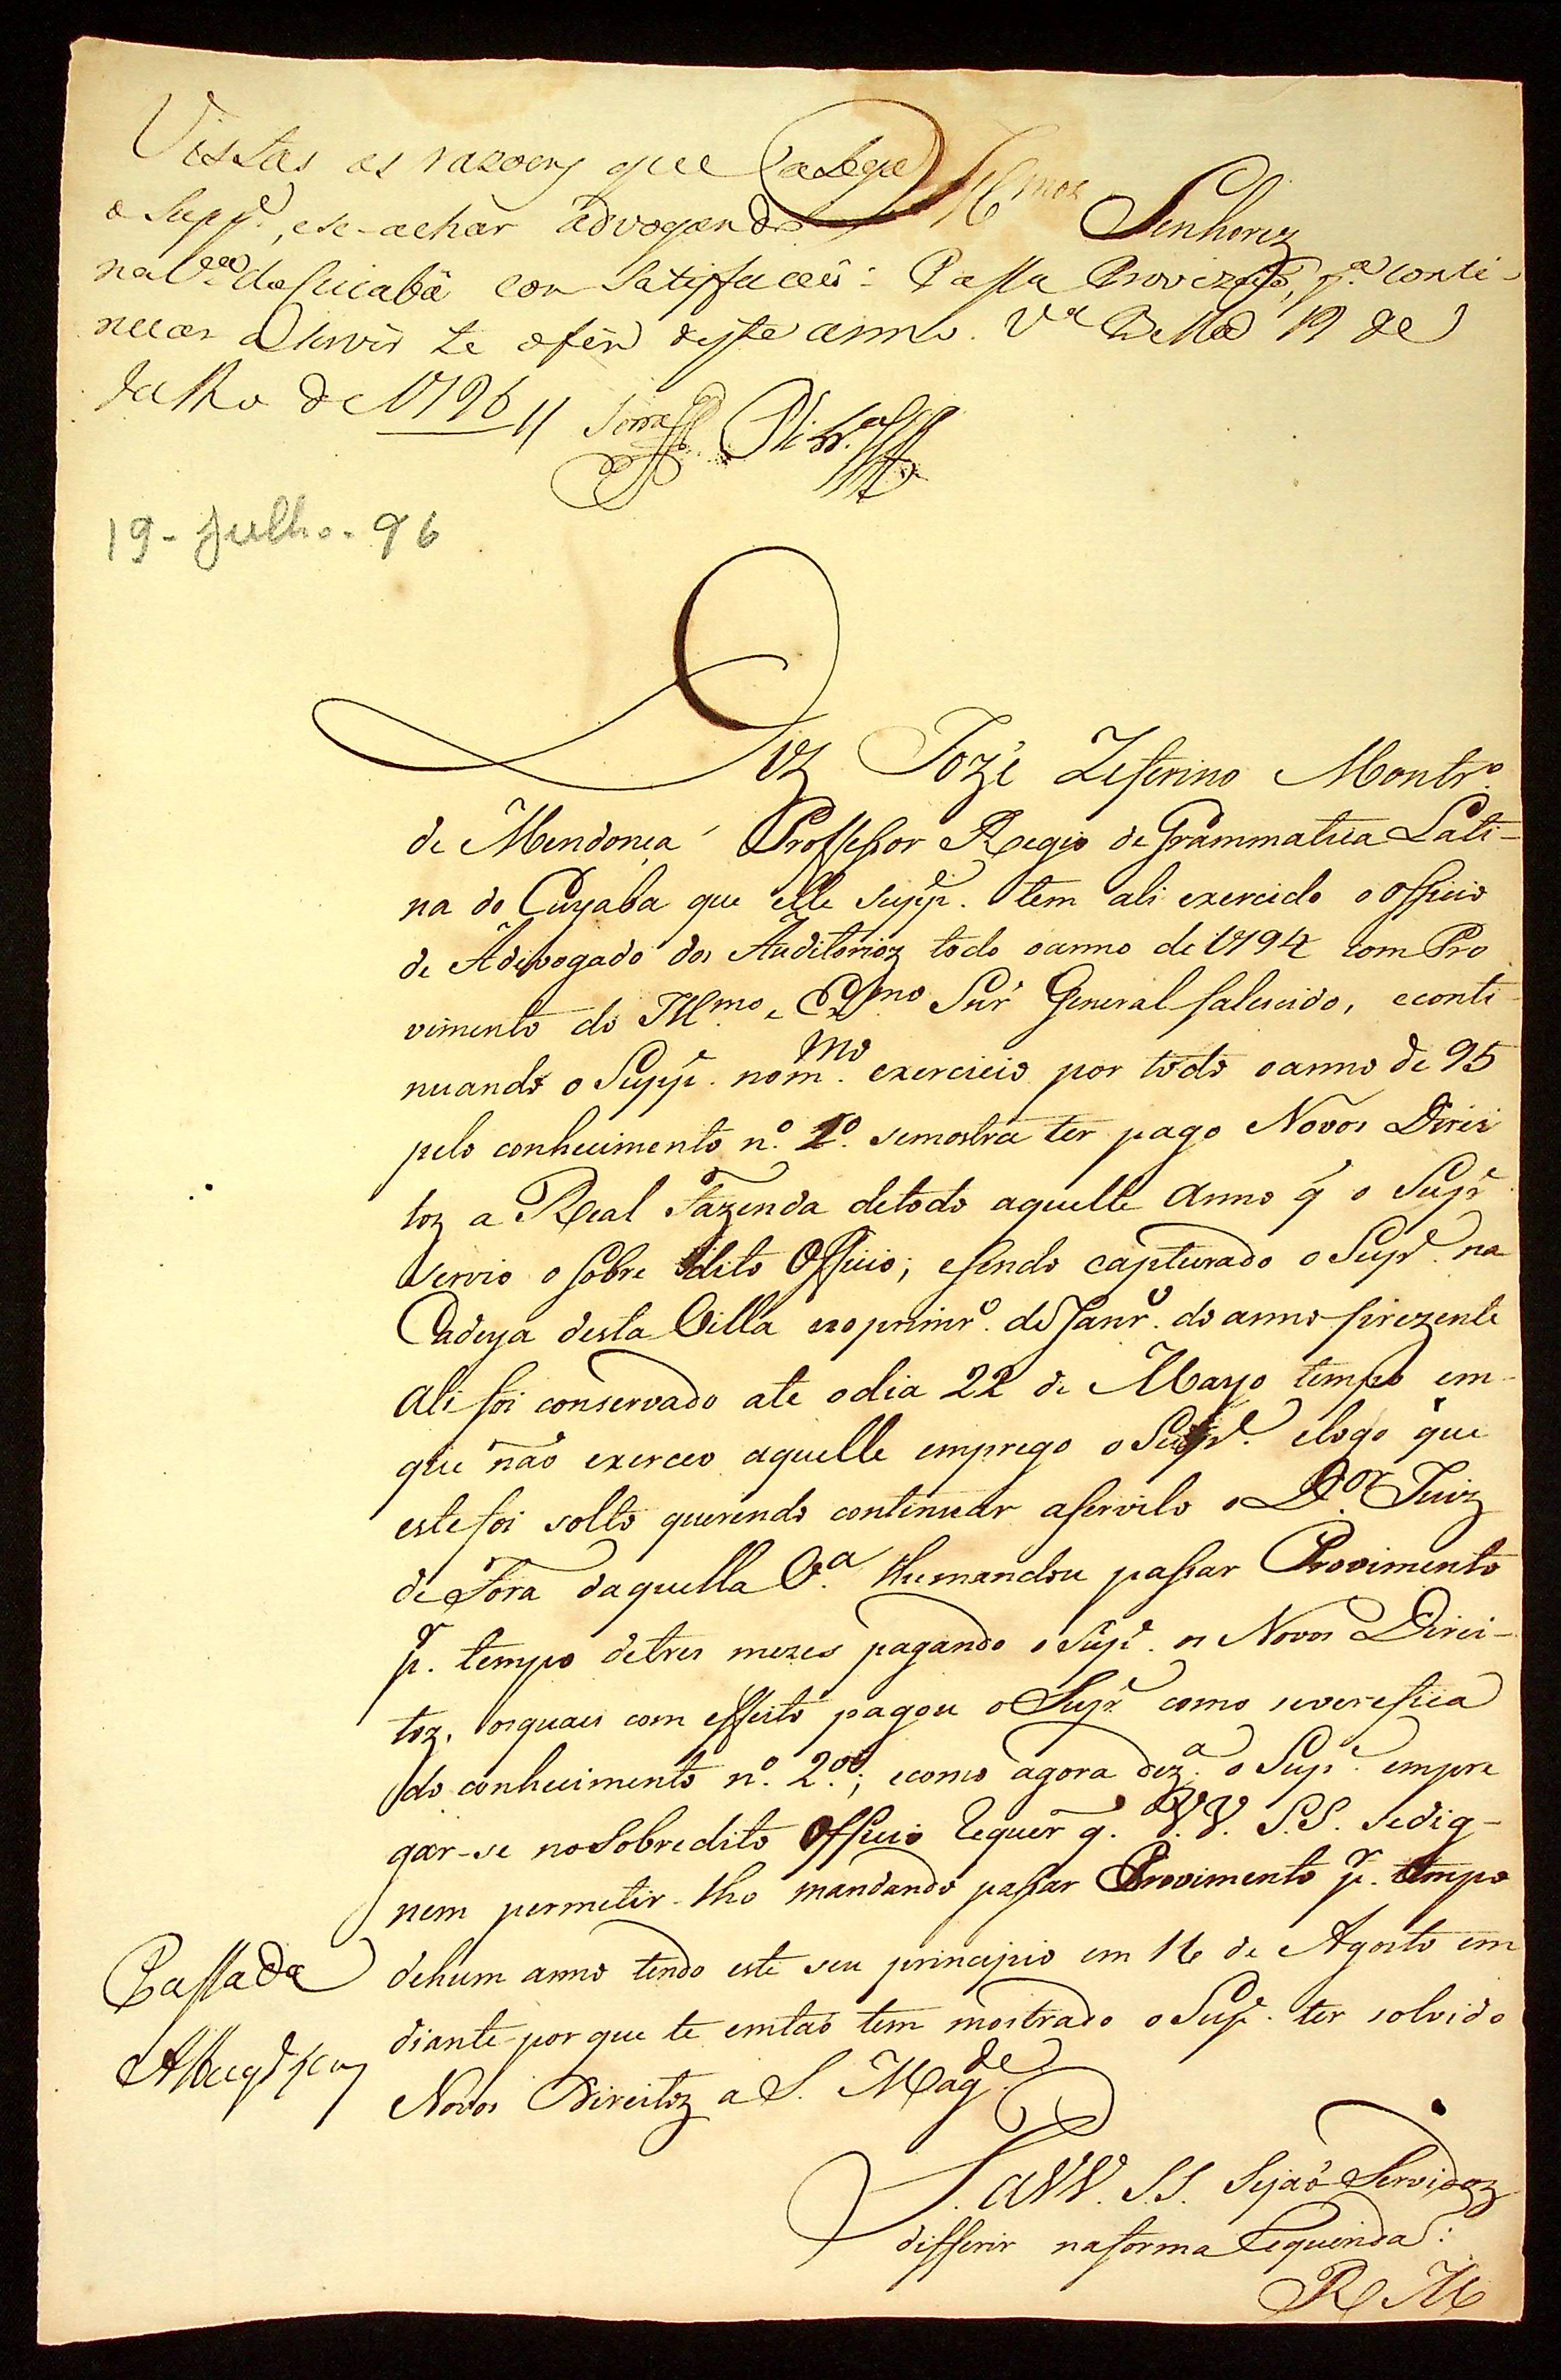 Vistas as razoens que alega
o Supp.e, e se achar advogando
Illmos Senhorez
na V.a do Cuiabá com Satisfacaõ: Passa Provizaõ, p.a conti-
nuar a Servir te ofim deste anno. V.a Bella 19 de
Julho de 1796 //
19 - Julho - 96
Diz Jozé Zeferino Montr.o
de Mendonça Professor Regio de Grammatica Lati-
na do Cuyaba que elle supp.e tem ali exercido o officio
de Adevogado dos Auditorioz todo o anno de 1794 com Pro
vimento do Illmo e Exmo Snr' General falescido, e conti
nuando o Supp.e no m.mo exercicio por todo o anno de 95
pelo conhecimento n.o 1.o semostra ter pago Novos Direi
toz a Real Fazenda detodo aquelle Anno q' o Sup.e
servio o sobre dito Officio; e sendo capturado o Sup.e na
Cadeya desta Villa no primr.o de Janr.o do anno prezente
ali foi conservado ate odia 22 de Mayo tempo em-
que naõ exerceo aquelle emprego o Sup.e elogo que
este foi solto querendo continuar aservilo o D.or Juiz
de Fora daquella V.a lhemandou passar Provimento
p.r tempo detres mezes pagando o Sup.e os Novos Direi-
toz, osquaes com effeito pagou o Sup.e como severefica
do conhecimento n.o 2.o; ecomo agora dez.a o Sup.e empre
gar-se noSobredito Officio Requer q. V.V. S.S. sedig-
nem permetir-lho mandando passar Provimento p.r tempo
dehum anno tendo este seu principio em 16 de Agosto em
diante porque te emtaõ tem mostrado o Sup.e ter solvido
Novos Direitoz a S. Mag.de
Passada
P. a VV. S.S. Sejaõ Servidoz
differir naforma Requerida:
R M